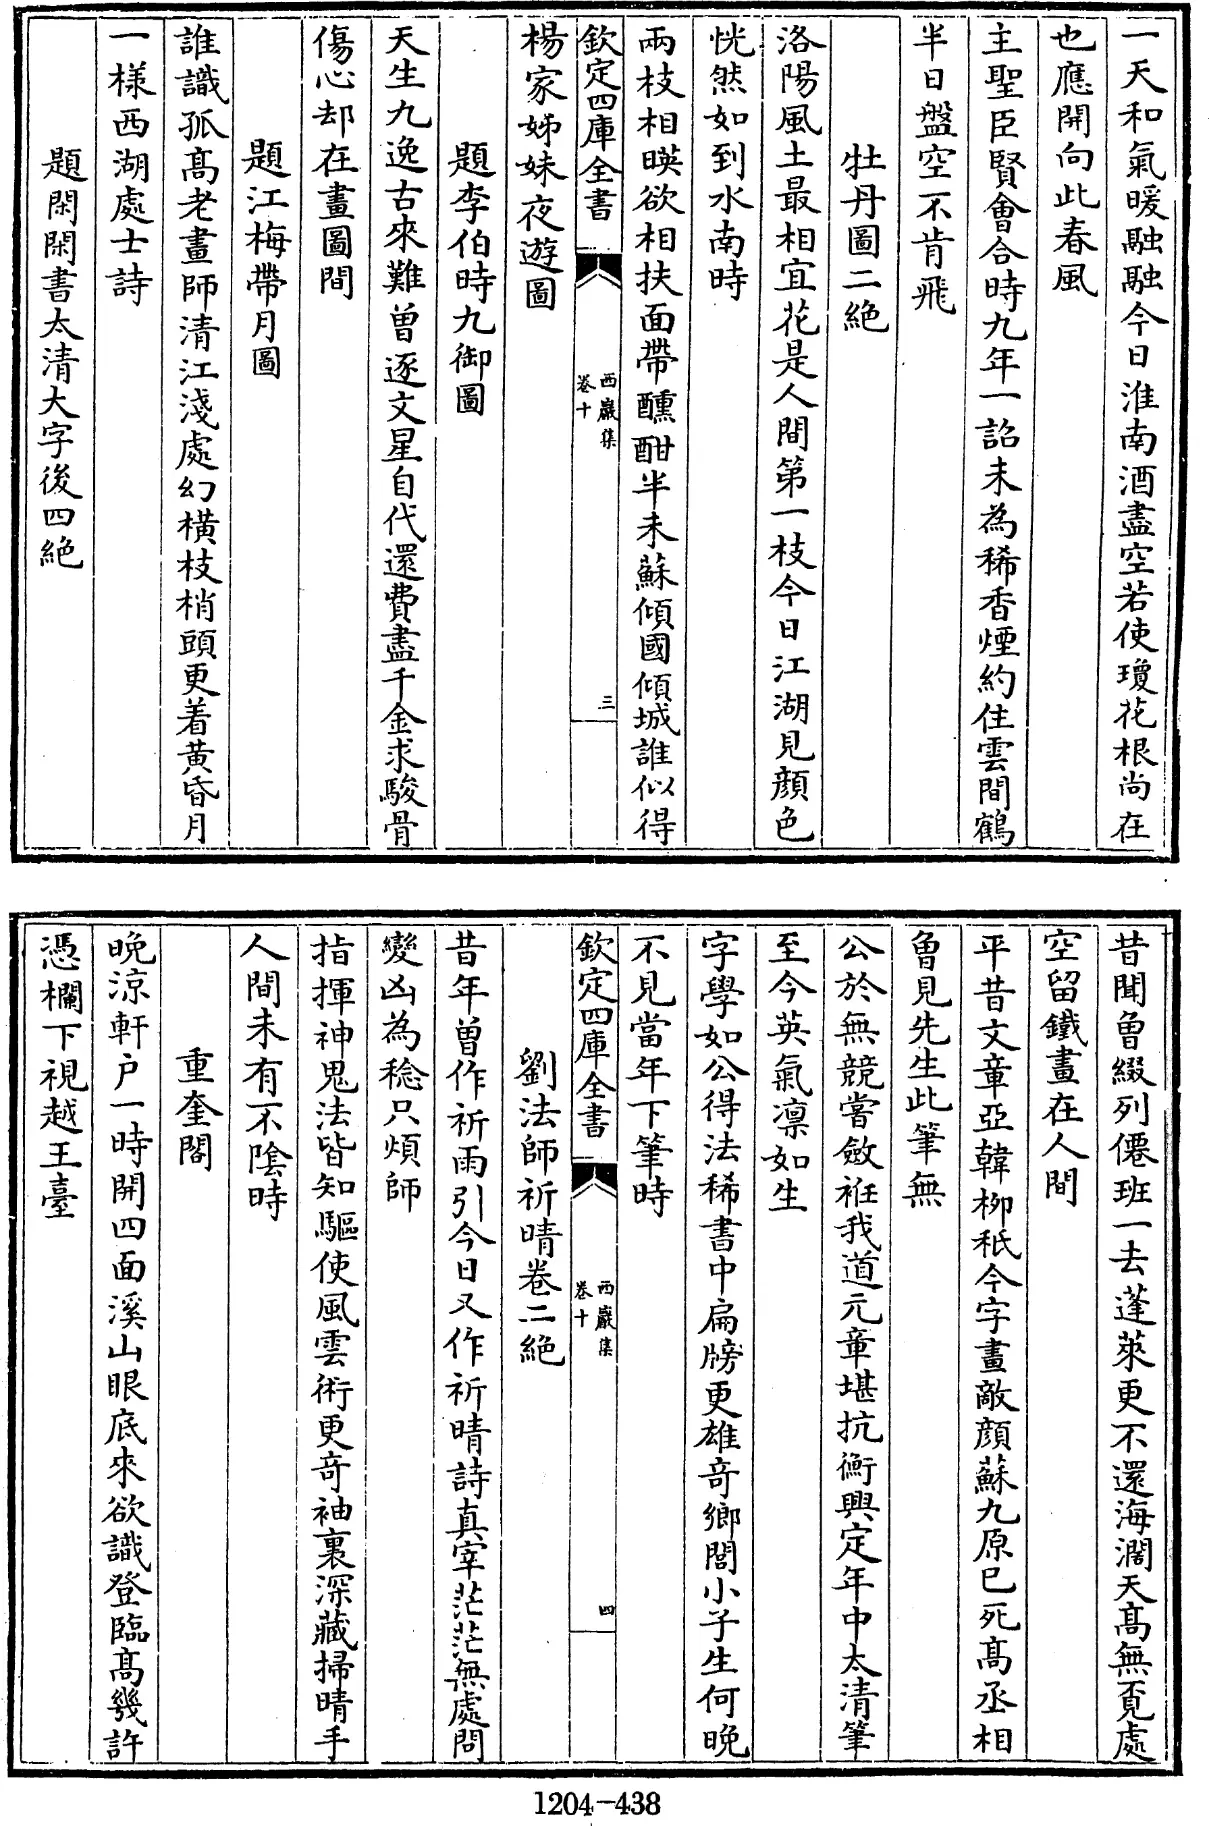 一天和氣暖融融今日淮南酒盡空若使瓊花根尚在
也應開向此春風
主聖臣賢會合時九年一詔未為稀香煙約住雲間鶴
半日盤空不肯飛
牡丹圖二絶
洛陽風土最相宜花是人間第一枝今日江湖見顔色
恍然如到水南時
兩枝相暎欲相扶面帶醺酣半未蘇傾國傾城誰似得
欽定四庫全書
西巖集
卷十
三
楊家姊妹夜遊圖
題李伯時九御圖
天生九逸古來難曾逐文星自代還費盡千金求駿骨
傷心却在畫圖間
題江梅帶月圖
誰識孤髙老畫師清江淺處幻橫枝梢頭更着黃昏月
一樣西湖處士詩
題閑閑書太清大字後四絶
昔聞曾綴列僊班一去蓬萊更不還海濶天髙無覔處
空留鐵畫在人間
平昔文章亞韓柳秪今字畫敵顔蘇九原已死髙丞相
曾見先生此筆無
公於無競嘗斂袵我道元章堪抗衡興定年中太清筆
至今英氣凛如生
字學如公得法稀書中扁牓更雄奇鄉閭小子生何晚
不見當年下筆時
欽定四庫全書
西巖集
卷十
四
劉法師祈晴卷二絶
昔年曽作祈雨引今日又作祈晴詩真宰茫茫無處問
變凶為稔只煩師
指揮神鬼法皆知驅使風雲術更奇袖裏深藏掃晴手
人間未有不陰時
重奎閣
晚涼軒户一時開四面溪山眼底來欲識登臨髙幾許
憑欄下視越王臺
1204-438